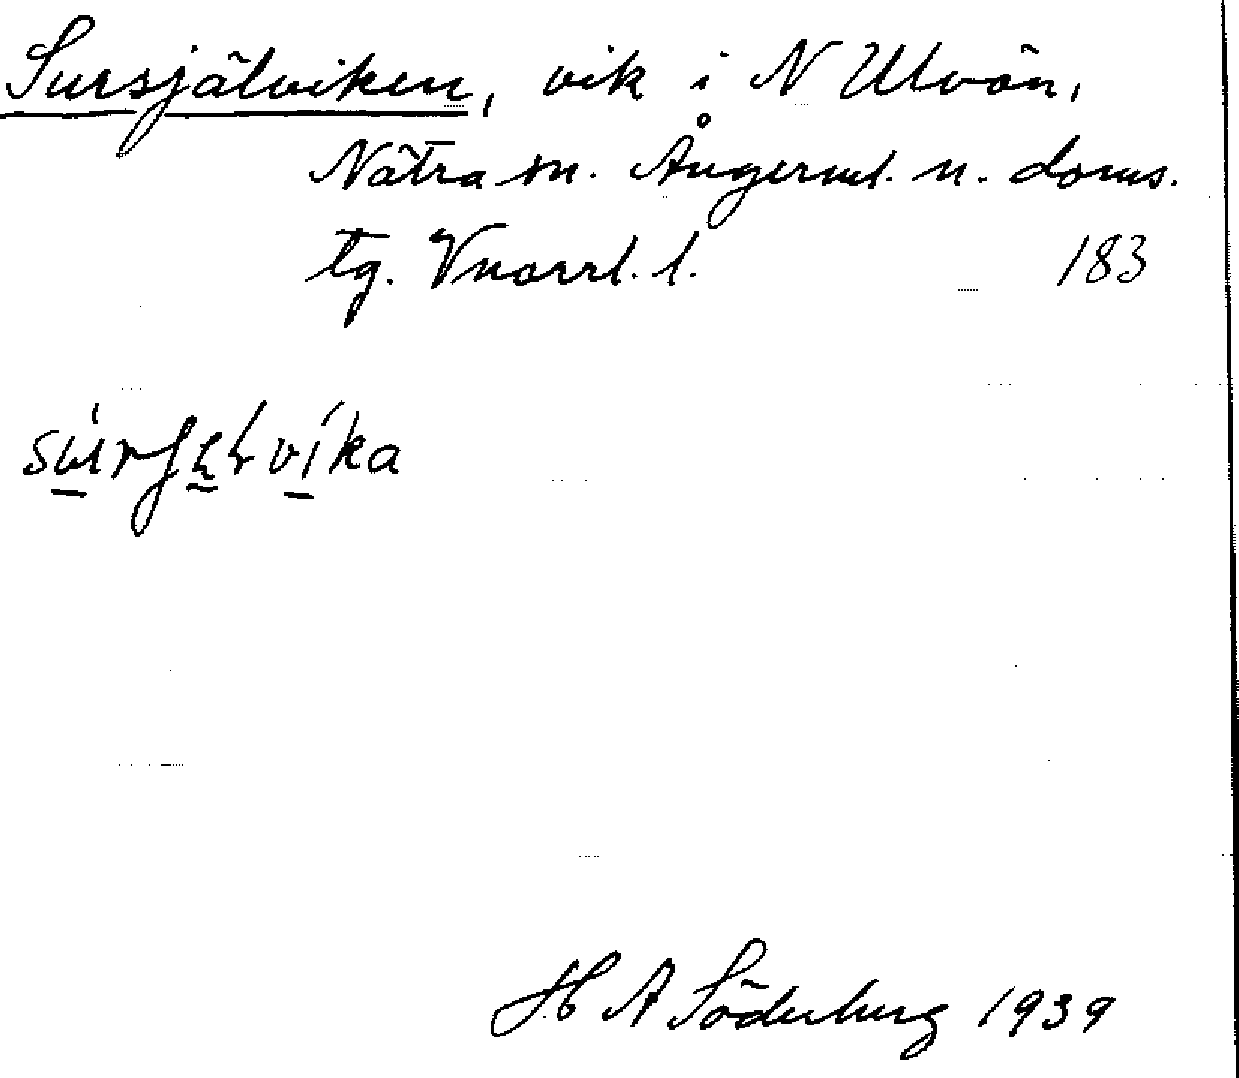 Sursjälviken, vik i N Ulvön,
Nätra sn. Ångerml. n. doms.
tg. Vnorrl. l. 183
H A Söderberg 1939